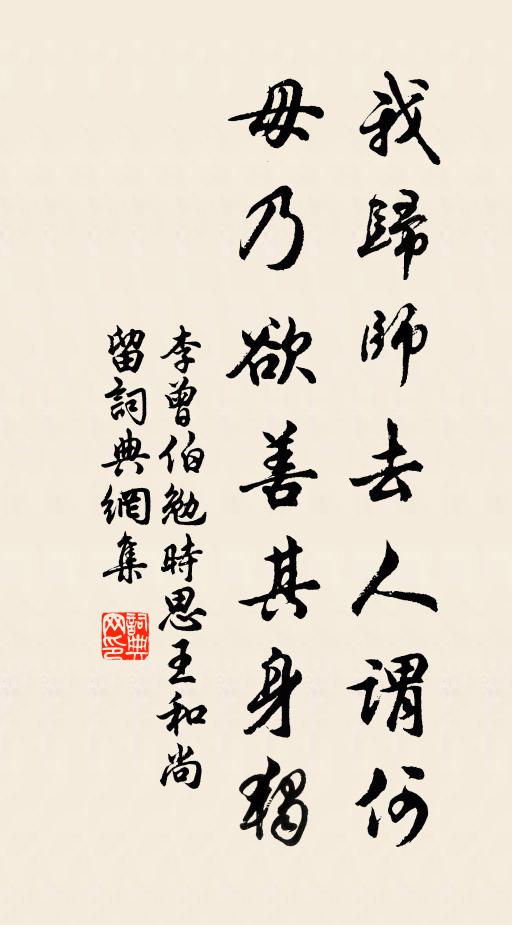 我歸師去人謂何
毋乃欲善其身獨
李曾伯勉時思王和尚
留詞典網集
詞典网印